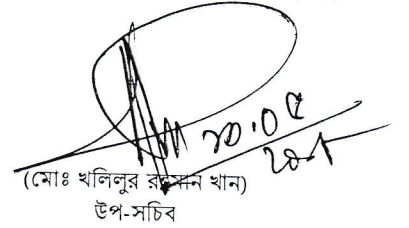 ২০.০৫
(মোঃ খলিলুর রহমান খান)
উপ-সচিব